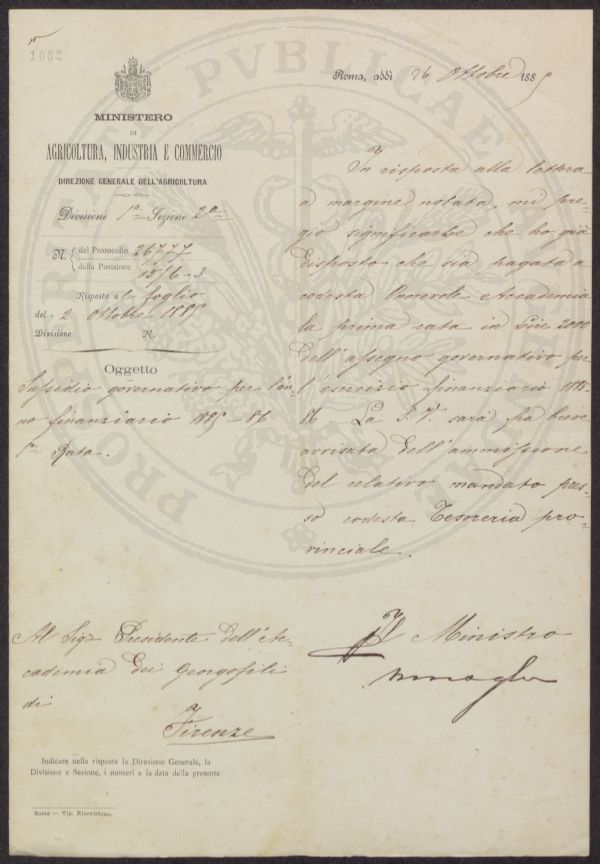 1082
MINISTERO
DI
AGRICOLTURA, INDUSTRIA E COMMERCIO
DIREZIONE GENERALE DELL'AGRICOLTURA
Divisione 1ª Sezione 2ª
N. del Protocollo 26777
della Posizione 15/6-3
Risposta al foglio
del 2 Ottobre 1885
Divisione N.
Oggetto
Sussidio governativo per l'an-
no finanziario 1885-86
1ª Rata.
Roma, addì 26 Ottobre 1885
In risposta alla lettera
a margine notata, mi pre-
gio significarLe che ho già
disposto che sia pagata a
codesta Onorevole Accademia
la prima rata in Lire 2000
dell'assegno governativo per
l'esercizio finanziario 1885-
86. La S. V. sarà fra breve
avvisata dell'ammissione
del relativo mandato pres-
so codesta Tesoreria pro-
vinciale.
Il Ministro
Al Sigr Presidente dell'Ac-
cademia dei Georgofili
di
Firenze
Indicare nella risposta la Direzione Generale, la
Divisione e Sezione, i numeri e la data della presente
Roma — Tip. Elzeviriana.
PROSPERITATI PVBLICAE AVGENDAE